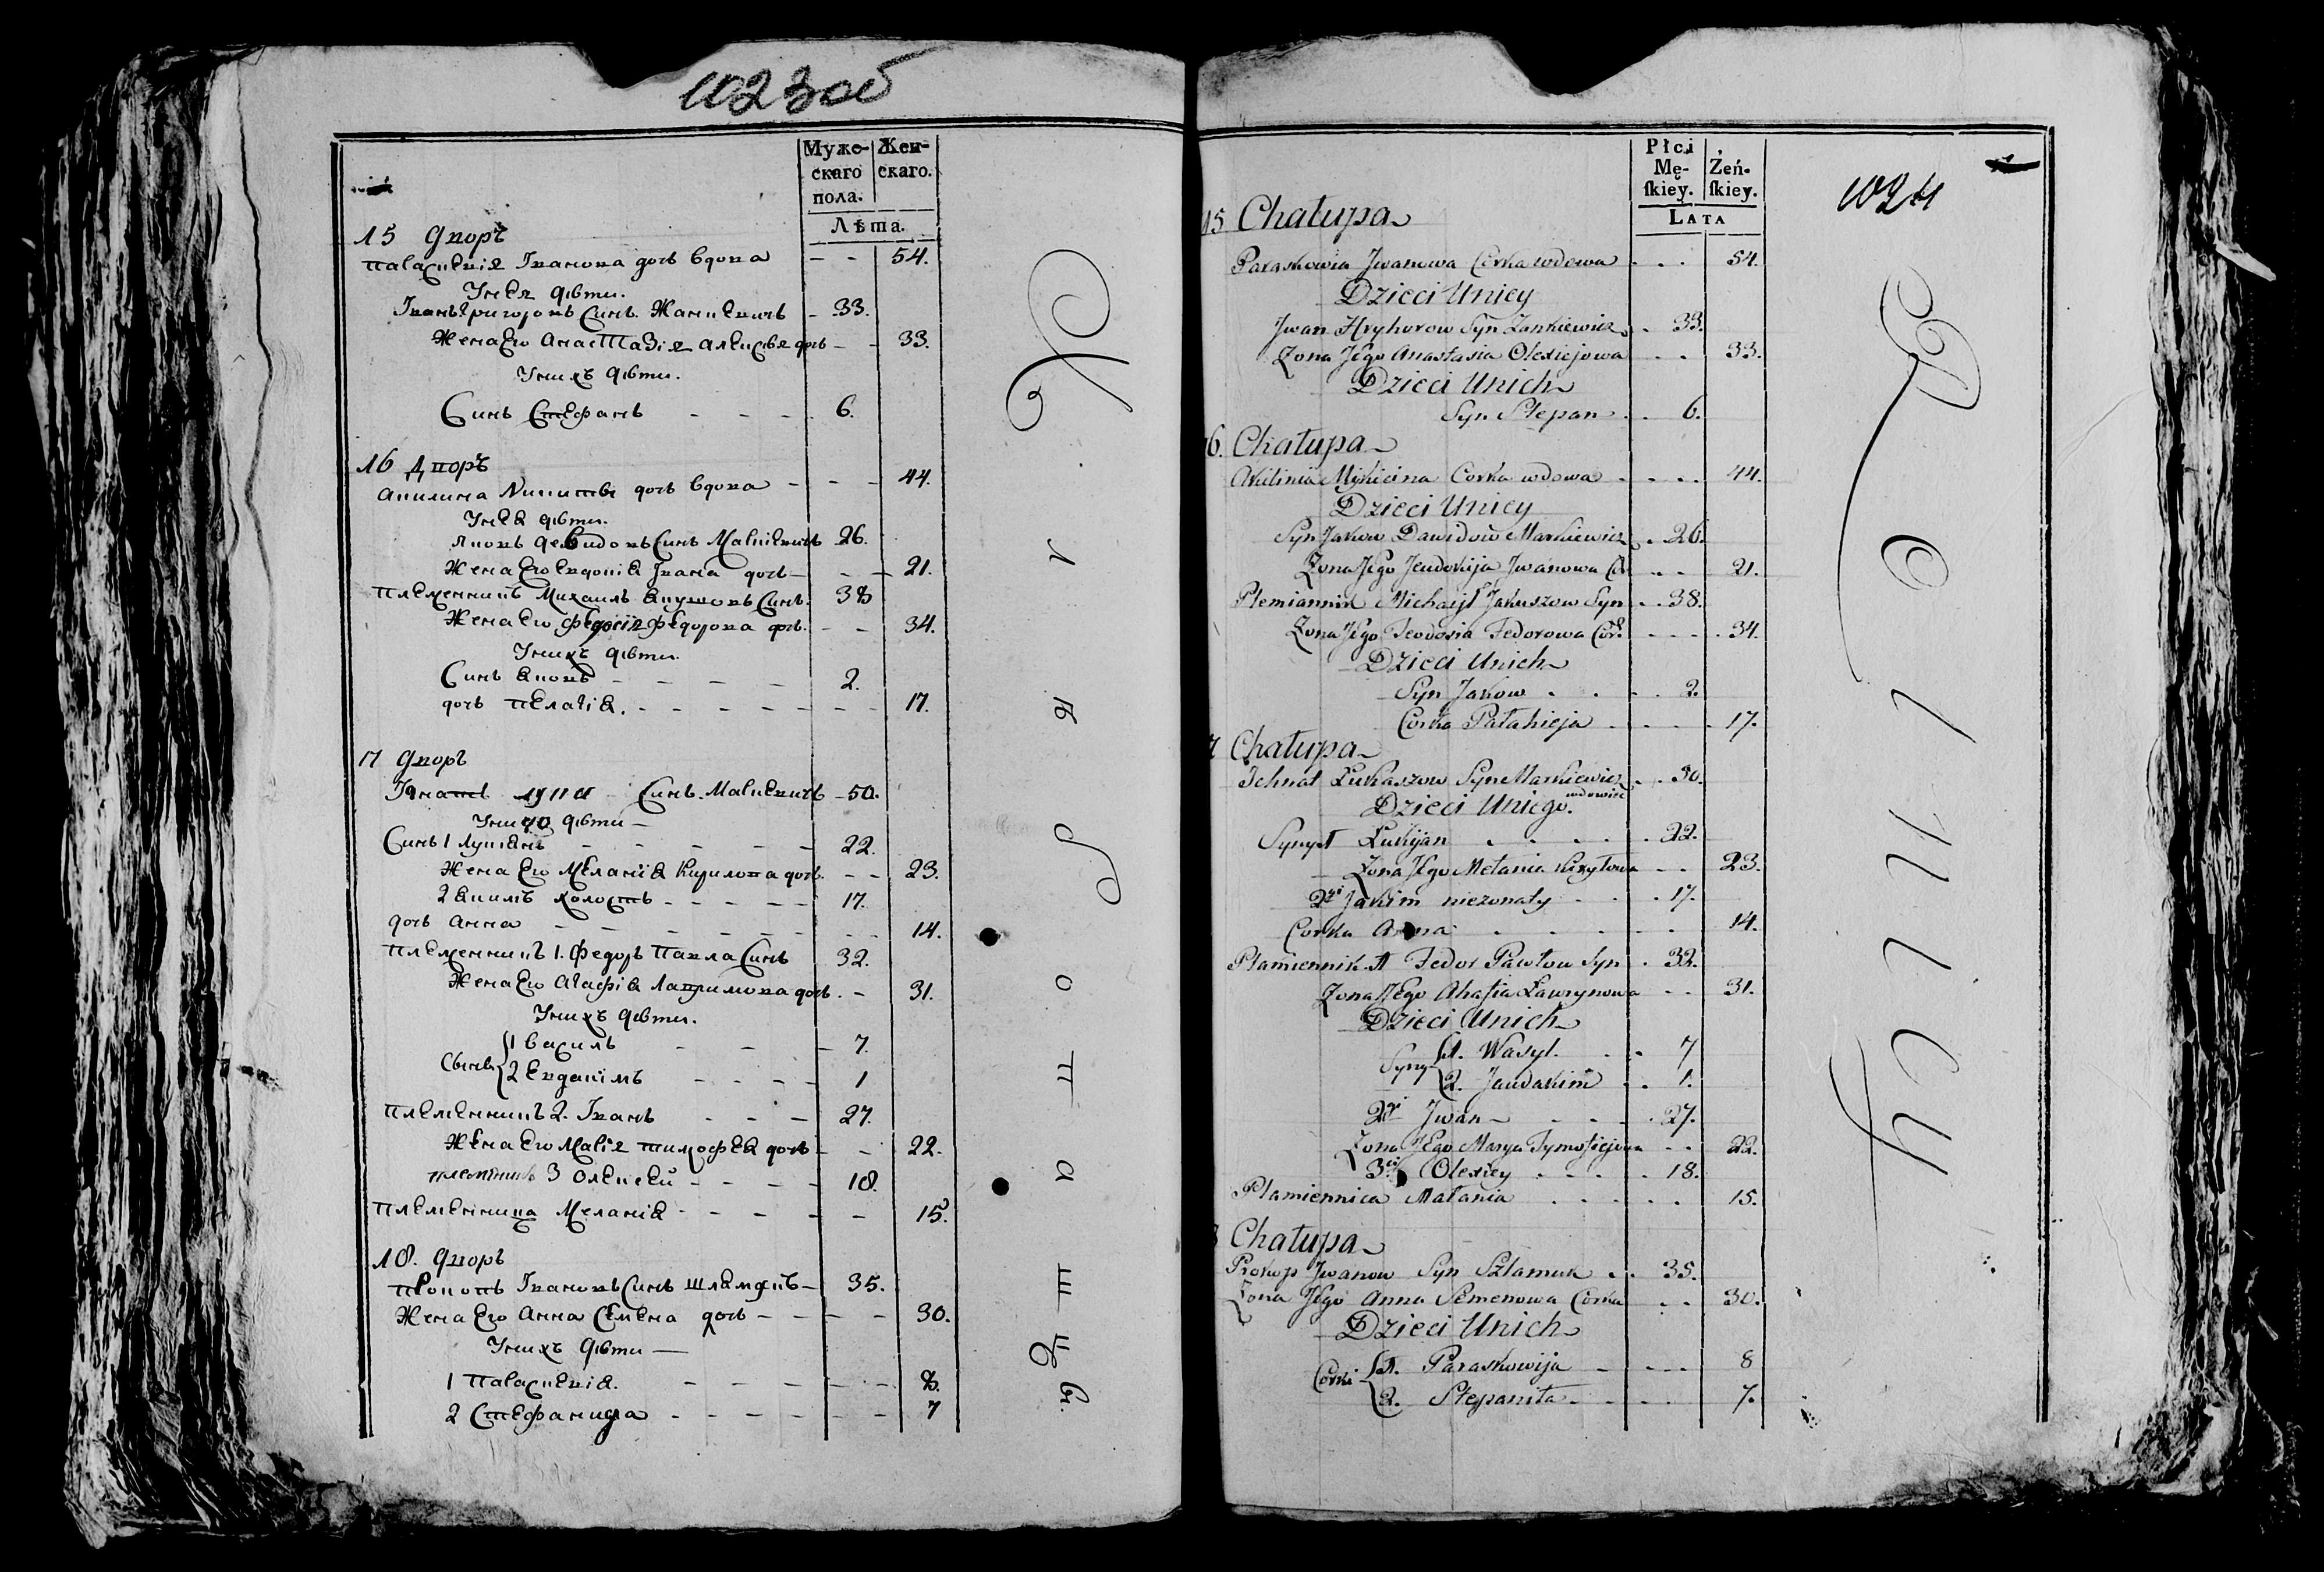 1023 об
Муже-
скаго
пола.
Жен-
скаго.
Лѣта.
15 Дворъ
Параскевiя Iванова дочь вдова - - 54.
У нея дѣти.
Iванъ Григоровъ синъ Жанкевичъ - 33.
Жена его Анастазiя Алексѣя дочь - - 33.
У нихъ дѣти.
Синъ Стефанъ - - - 6.
16 Дворъ
Акилина Никитѣ дочь вдова - - - 44.
У нея дѣти.
Яковъ Девидовъ синъ Маркевичъ 26.
Жена его Евдокiя Iвана дочь - - - 21.
Племенникъ Михаилъ Якушовъ синъ. 38
Жена его Федосiя Федорова дочь. - - 34.
У нихъ дѣти.
Синъ Яковъ - - - - 2.
дочь Пелагiя. - - - - - - - 17.
17 Дворъ
Iгнатъ Лука синъ. Маркевичъ - 50.
У него дѣти -
Синъ 1 Лукiянъ - - - - - 22.
Жена его Меланiя Кирилова дочь. - - 23.
2 Якимъ холостъ - - - - - 17.
дочь Анна - - - - - - - - 14.
Племенникъ 1. Федоръ Павла синъ 32.
Жена его Агафiя Лавримова дочь. - 31.
У нихъ дѣти.
Сынѣ 1 Василь - - - 7.
2 Евдакiмъ - - - - 1
Племенникъ 2. Iванъ - - - 27.
Жена его Марiя Тимофея дочь - - 22.
племѣникъ 3 Олексей - - - - 18.
Племенница Меланiя - - - - - 15.
18. Дворъ
Прокопъ Iвановъ синъ Шлямукъ - 35.
Жена его Анна Семена дочь - - - - 30.
У нихъ дѣти -
1 Параскевiя. - - - - - - 8.
2 Стефанида - - - - - - 7
Płci
Mę-
ſkiey.
Żeń-
ſkiey.
LATA
1024
15 Chałupa
Paraskowia Jwanowa Corka wdowa . . . 54.
Dzieci Uniey
Jwan Hryhorow Syn Zankiewicz . 33.
Zona Jego Anastasia Olexiejowa . . 33.
Dzieci Unich
Syn Stepan . . 6.
6. Chałupa
Akilinia Mykicina Corka wdowa . . . . 44.
Dzieci Uniey
Syn Jakow Dawidow Markiewicz . 26.
Zona Jego Jeudokija Jwanowa Cor . . 21.
Plemiannik Michajł Jakuszow Syn . . 38.
Zona Jego Teodosia Fedorowa Cor. . . . . 34.
Dzieci Unich
Syn Jakow . . . . 2.
Corka Pałahieja . . . . 17.
7 Chałupa
Jchnat Łukaszow Syn Markiewicz . . 50.
wdowiec
Dzieci Uniego.
Syny 1 Łukijan . . . . . 22.
Zona Jego Metania Kirylowa . . 23.
2gi Jakim niezonaty . . . 17.
Corka Anna . . . . . . 14.
Plamiennik 1 Fedor Pawłow Syn . 32.
Zona Jego Ahafia Ławrynowa . . 31.
Dzieci Unich
Syny 1. Wasyl. . . 7
2. Jaudakim . . 1.
2gi Jwan - . . . 27.
Zona Jego Marya Tymofiejowa . . 22.
3ci Olexiey . . . . 18.
Plamiennica Małania . . . . . 15.
8 Chałupa
Prokop Jwanow Syn Szlamuk . . 35.
Zona Jego Anna Semenowa Corka . . 30.
Dzieci Unich
Corki 1. Paraskowija - - - - 8
2. Stepanita - . - . . 7.